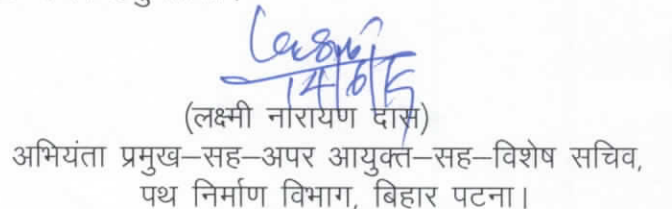 14/6/15
(लक्ष्मी नारायण दास)
अभियंता प्रमुख–सह–अपर आयुक्त–सह–विशेष सचिव,
पथ निर्माण विभाग, बिहार पटना।